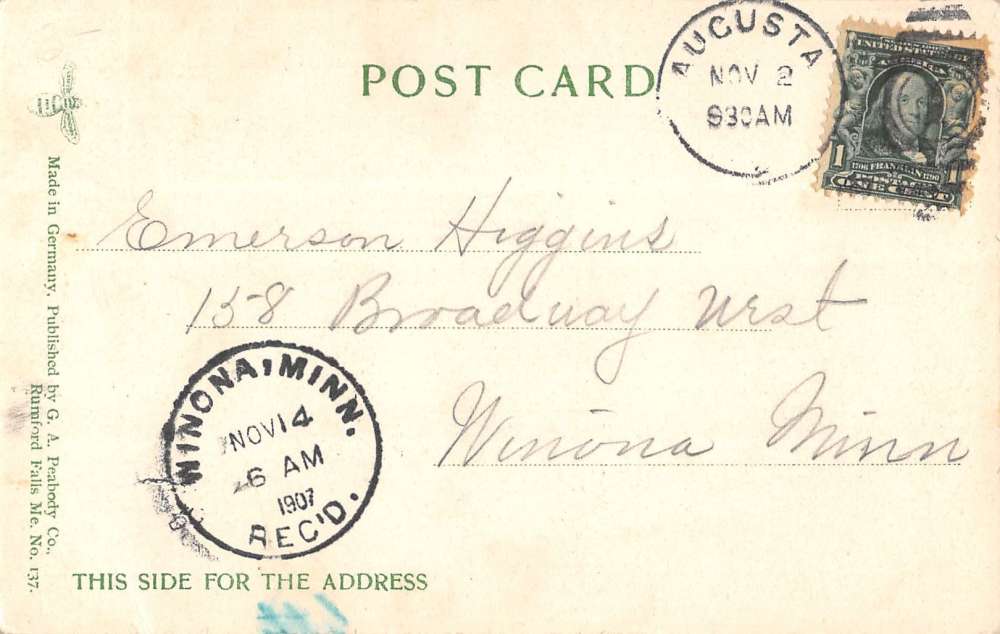 POST CARD
AUGUSTA
NOV 2
930AM
UNITED STATES
1 1706 FRANKLIN 1790 1
ONE CENT
Emerson Higgins
158 Broadway West
Winona Minn
WINONA, MINN.
NOV 14
6 AM
1907
REC'D.
Made in Germany, Published by G. A. Peabody Co.,
Rumford Falls Me. No. 137.
THIS SIDE FOR THE ADDRESS